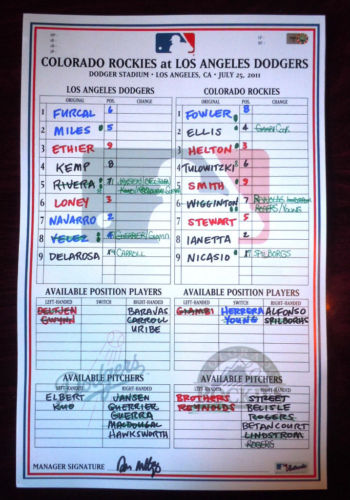 COLORADO ROCKIES at LOS ANGELES DODGERS
DODGER STADIUM • LOS ANGELES, CA • JULY 25, 2011
LOS ANGELES DODGERS
ORIGINAL POS. CHANGE
1 FURCAL 6
2 MILES 5
3 ETHIER 9
4 KEMP 8
5 RIVERA 7
6 LONEY 3
7 NAVARRO 2
8 VELEZ 4 GUERRIER/GWYNN
9 DELAROSA 1 CARROLL
COLORADO ROCKIES
ORIGINAL POS. CHANGE
1 FOWLER 8
2 ELLIS 4
3 HELTON 3
4 TULOWITZKI 6
5 SMITH 9
6 WIGGINTON 7
ROGERS/YOUNG
7 STEWART 5
8 IANETTA 2
9 NICASIO 1 SPILBORGS
AVAILABLE POSITION PLAYERS
LEFT-HANDED SWITCH RIGHT-HANDED
OELTJEN BARAJAS
GWYNN CARROLL
URIBE
AVAILABLE POSITION PLAYERS
LEFT-HANDED SWITCH RIGHT-HANDED
GIAMBI HERRERA ALFONSO
YOUNG SPILBORGS
AVAILABLE PITCHERS
LEFT-HANDED RIGHT-HANDED
ELBERT JANSEN
KUO GUERRIER
GUERRA
MACDOUGAL
HAWKSWORTH
AVAILABLE PITCHERS
LEFT-HANDED RIGHT-HANDED
BROTHERS STREET
REYNOLDS BELISLE
ROGERS
BETANCOURT
LINDSTROM
MANAGER SIGNATURE